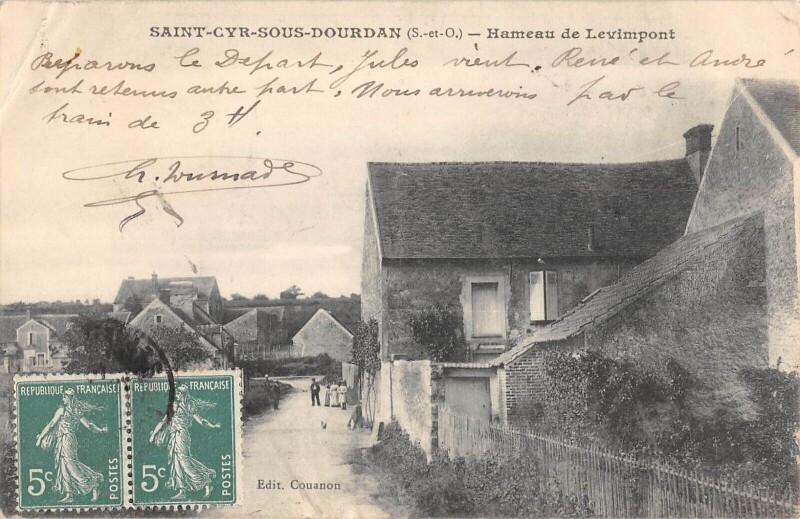 SAINT-CYR-SOUS-DOURDAN (S.-et-O.) — Hameau de Levimpont
le Depart, Jules vient. René et André
sont retenus autre part, Nous arriverons par le
train de 3 H.
REPUBLIQUE FRANÇAISE REPUBLIQUE FRANÇAISE
5c POSTES 5c POSTES
Edit. Couanon